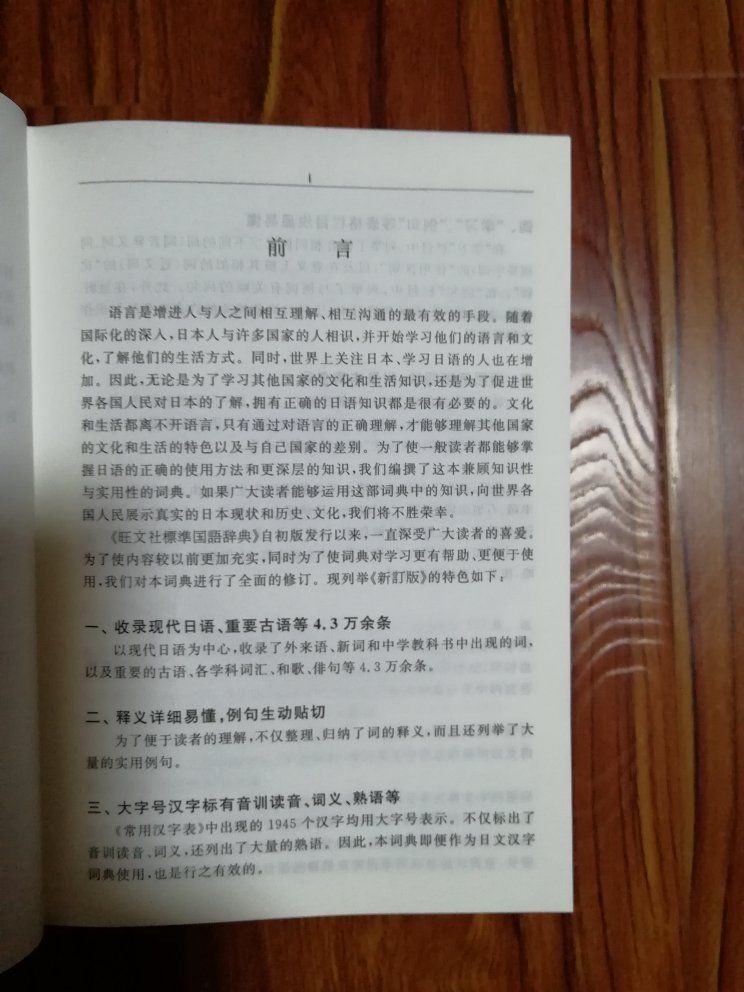 1
前　言
语言是增进人与人之间相互理解、相互沟通的最有效的手段。随着
国际化的深入，日本人与许多国家的人相识，并开始学习他们的语言和文
化，了解他们的生活方式。同时，世界上关注日本、学习日语的人也在增
加。因此，无论是为了学习其他国家的文化和生活知识，还是为了促进世
界各国人民对日本的了解，拥有正确的日语知识都是很有必要的。文化
和生活都离不开语言，只有通过对语言的正确理解，才能够理解其他国家
的文化和生活的特色以及与自己国家的差别。为了使一般读者都能够掌
握日语的正确的使用方法和更深层的知识，我们编撰了这本兼顾知识性
与实用性的词典。如果广大读者能够运用这部词典中的知识，向世界各
国人民展示真实的日本现状和历史、文化，我们将不胜荣幸。
《旺文社標準国語辞典》自初版发行以来，一直深受广大读者的喜爱。
为了使内容较以前更加充实，同时为了使词典对学习更有帮助、更便于使
用，我们对本词典进行了全面的修订。现列举《新訂版》的特色如下：
一、收录现代日语、重要古语等 4.3 万余条
以现代日语为中心，收录了外来语、新词和中学教科书中出现的词，
以及重要的古语、各学科词汇、和歌、俳句等 4.3 万余条。
二、释义详细易懂，例句生动贴切
为了便于读者的理解，不仅整理、归纳了词的释义，而且还列举了大
量的实用例句。
三、大字号汉字标有音训读音、词义、熟语等
《常用汉字表》中出现的 1945 个汉字均用大字号表示。不仅标出了
音训读音、词义，还列出了大量的熟语。因此，本词典即便作为日文汉字
词典使用，也是行之有效的。